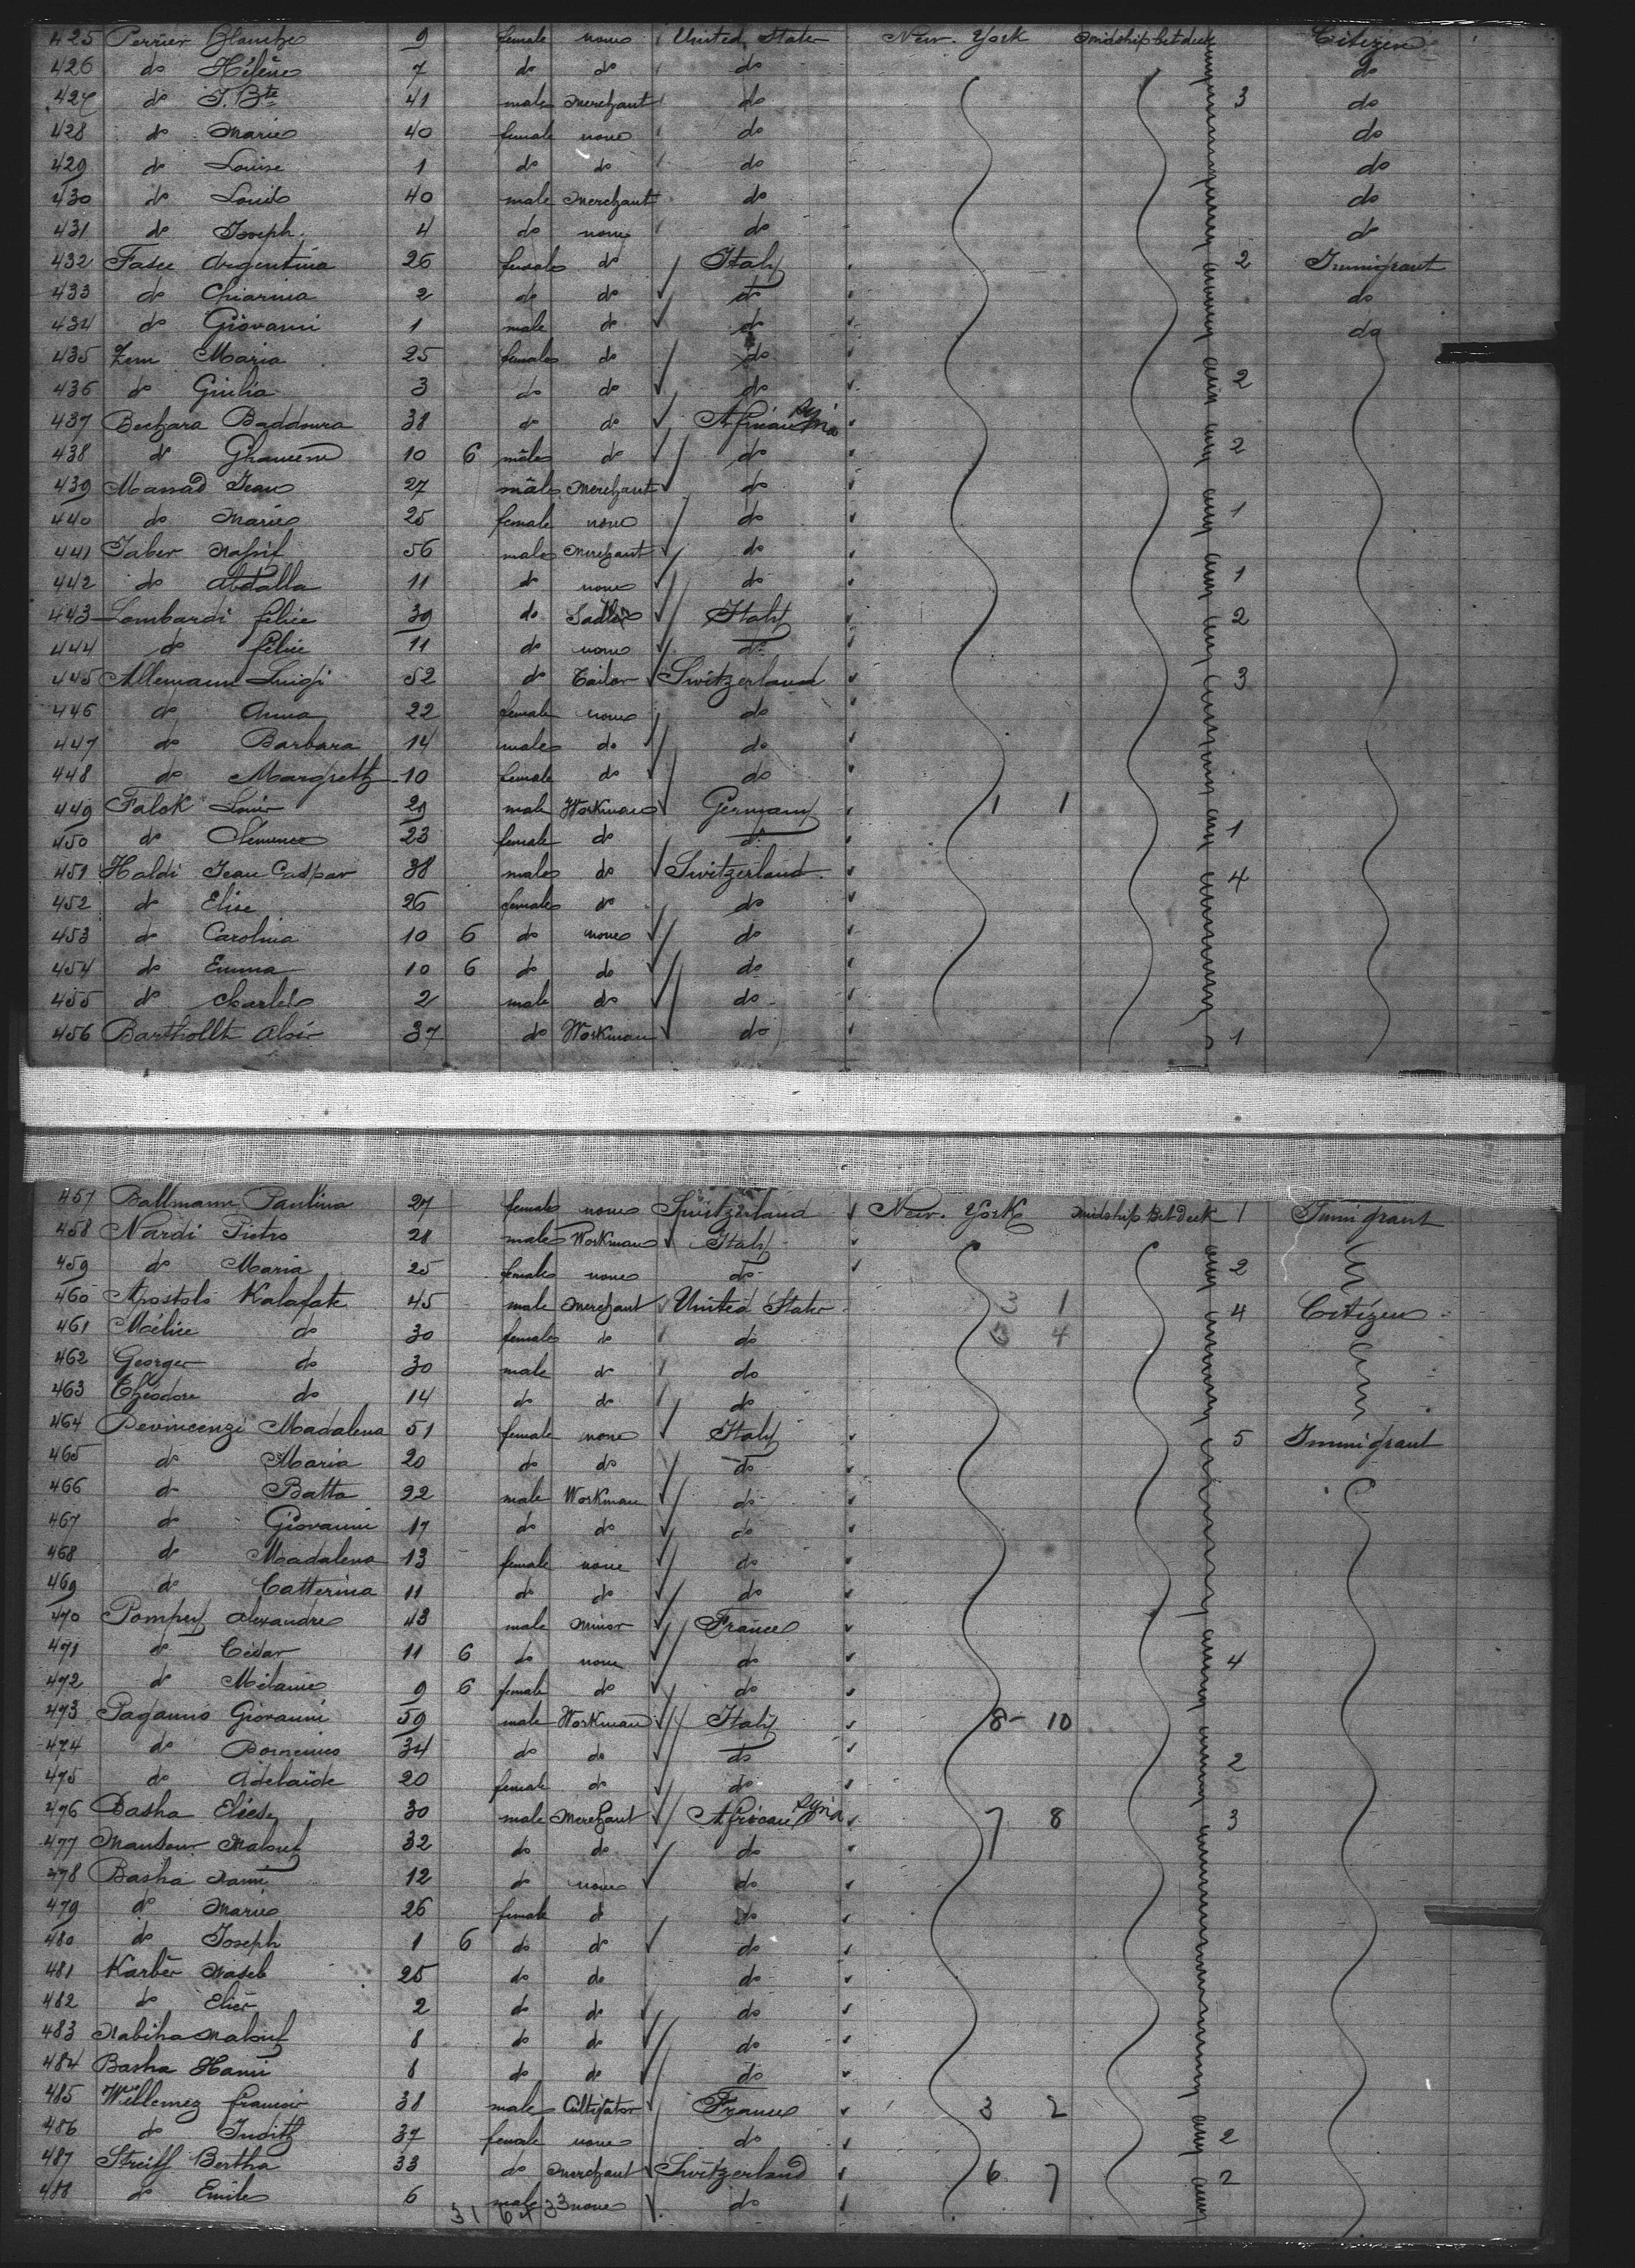 425 Perrier Blanche 9 female none United States New-York midship bet deck Citizen
426 do Hélène 7 do do do do
427 do J. Bte 41 male merchant do 3 do
428 do Marie 40 female none do do
429 do Louise 1 do do do do
430 do Louis 40 male merchant do do
431 do Joseph 4 do none do do
432 Fasce Argentina 26 female do Italy 2 Immigrant
433 do Chiarina 2 do do do do
434 do Giovanni 1 male do do do
435 Zem Maria 25 female do do
436 do Giulia 3 do do do 2
437 Bechara Baddoura 38 do do African Syria
438 do 10 6 male do do 2
439 Massad Jean 27 male merchant do
440 do Marie 25 female none do 1
441 Jaber 56 male merchant do
442 do Abdalla 11 do none do 1
443 Lombardi felice 39 do Italy 2
444 do felice 11 do none do
445 Allemann Luigi 52 do Tailor Switzerland 3
446 do Anna 22 female none do
447 do Barbara 14 male do do
448 do Margreth 10 female do do
449 Falok Louis 29 male Workman Germany 1 1
450 do Clémence 23 female do do 1
451 Haldi Jean Caspar 38 male do Switzerland 4
452 do Elise 26 female do do
453 do Carolina 10 6 do none do
454 do Emma 10 6 do do do
455 do Charles 2 male do do
456 Bartholltt Alois 37 do Workman do 1
457 Ballmann Paulina 27 female none Switzerland New-York midship Bet Deck 1 Immigrant
458 Nardi Pietro 28 male Workman Italy
459 do Maria 25 female none do 2
460 Apostolo Kalafate 45 male merchant United States 3 1 4 Citizen
461 Mélice do 30 female do do 3 4
462 Georges do 30 male do do
463 Théodore do 14 do do do
464 Devincenzi Madalena 51 female none Italy 5 Immigrant
465 do Maria 20 do do do
466 do Batta 22 male Workman do
467 do Giovanni 17 do do do
468 do Madalena 13 female none do
469 do Catterina 11 do do do
470 Pompey Alexandre 43 male minor France
471 do Cesar 11 6 do none do 4
472 do Mélanie 9 6 female do do
473 Paganno Giovanni 59 male Workman Italy 8- 10
474 do 34 do do do 2
475 do Adelaide 20 female do do
476 Basha Elias 30 male Merchant African Syria 7 8 3
477 Mansour Malouf 32 do do do
478 Basha 12 do none do
479 do Marie 26 female do do
480 do Joseph 1 6 do do do
481 Karber Naseb 25 do do do
482 do Elies 2 do do do
483 Nabiha Malouf 8 do do do
484 Basha Hanni 8 do do do
485 Willemez francois 38 male Cultivator France 3 2
486 do Judith 37 female none do 2
487 Streiff Bertha 33 do merchant Switzerland 6 7 2
488 do Emile 6 male none do
31 64 33